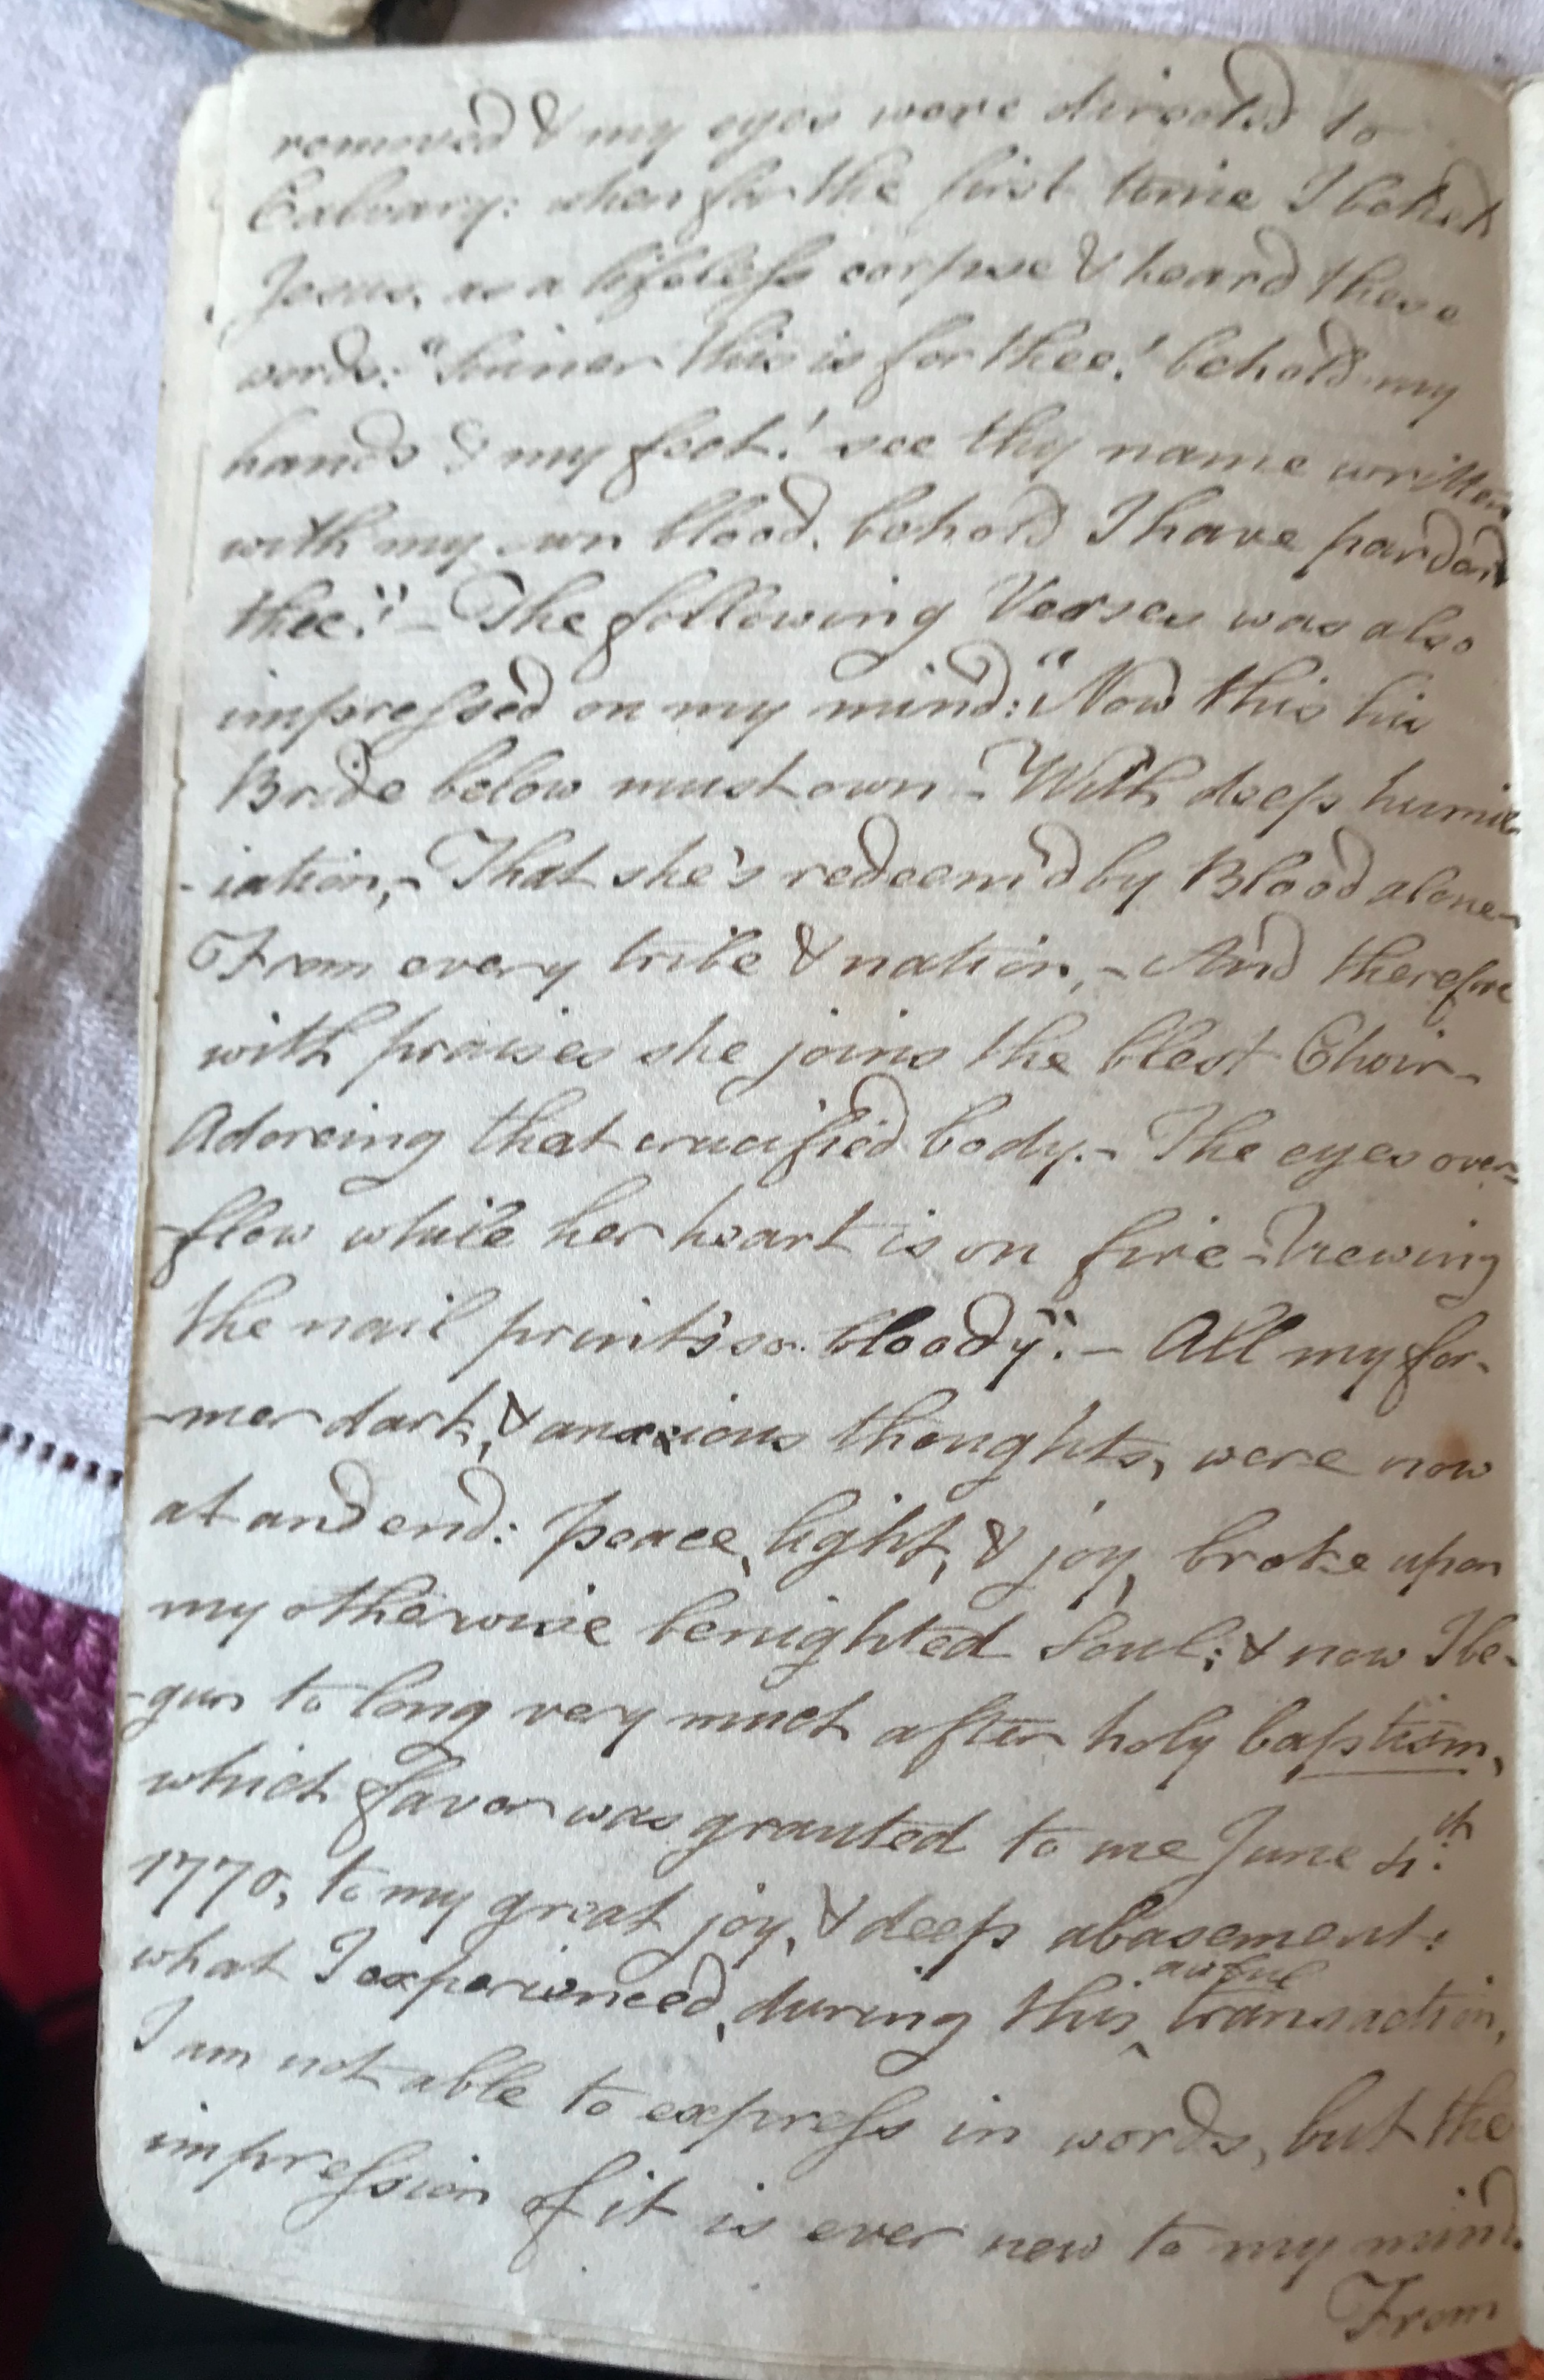 removed & my eyes were directed to
Calvary: when for the first time I beheld
Jesus, as a lifeless corpse & heard these
words: "Sinner this is for thee! behold my
hands & my feet! see thy name written
with my own blood. behold I have pardon'd
thee." – The following Verses was also
impressed on my mind: "Now this his
Bride below must own – With deep humil
-iation, – That she's redeem'd by Blood alone –
From every tribe & nation, – And therefore
with praises she joins the blest Choir –
Adoreing that crucified body. – The eyes over-
-flow while her heart is on fire – Viewing
the nail prints so bloody". – All my for-
-mer dark, & anxious thoughts, were now
at and end: peace, light, & joy, broke upon
my otherwise benighted Soul; & now I be-
-gun to long very much after holy baptism,
which favor was granted to me June 4th
1770, to my great joy, & deep abasement:
what I experienced, during this awful transaction,
I am not able to express in words, but the
impression of it is ever new to my mind.
From